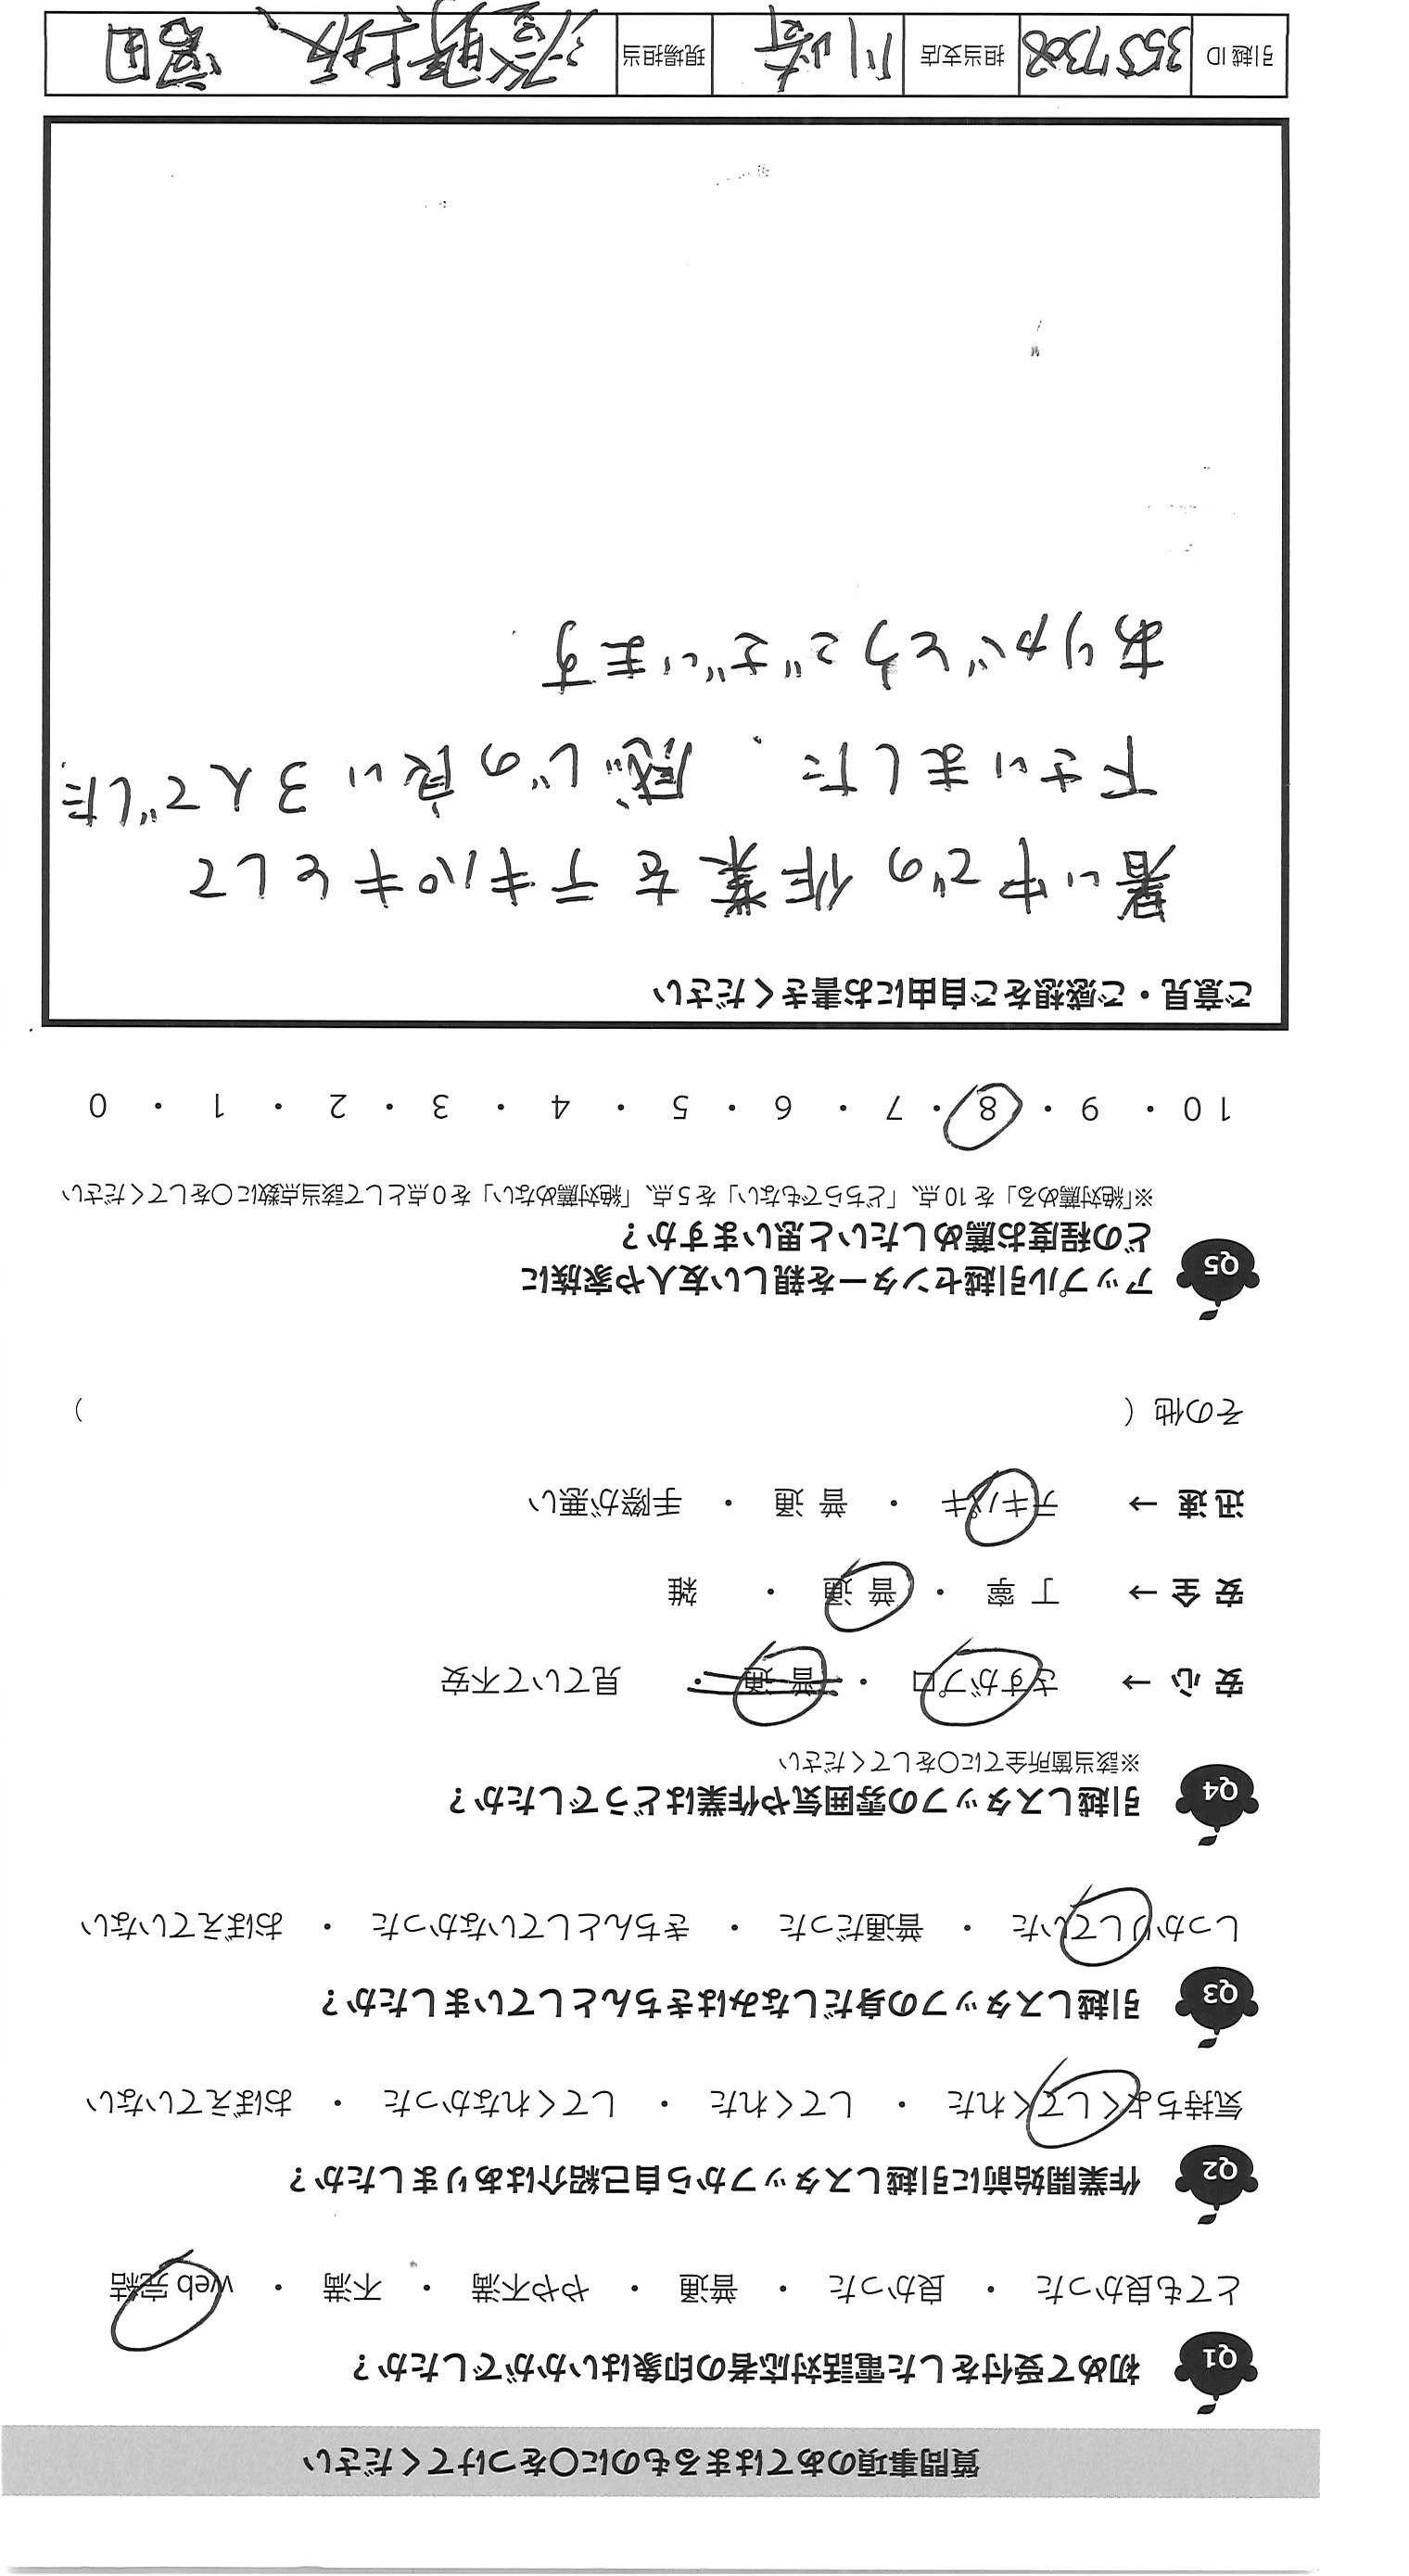 質問事項のあてはまるものに〇をつけてください
Q1 初めて受付をした電話対応者の印象はいかがでしたか？
とても良かった ・ 良かった ・ 普通 ・ やや不満 ・ 不満 ・ web 完結
Q2 作業開始前に引越しスタッフから自己紹介はありましたか？
気持ちよくしてくれた ・ してくれた ・ してくれなかった ・ おぼえていない
Q3 引越しスタッフの身だしなみはきちんとしていましたか？
しっかりしていた ・ 普通だった ・ きちんとしていなかった ・ おぼえていない
Q4 引越しスタッフの雰囲気や作業はどうでしたか？
※該当箇所全てに〇をしてください
安心 → さすがプロ ・ 普通 ・ 見ていて不安
安全 → 丁寧 ・ 普通 ・ 雑
迅速 → テキパキ ・ 普通 ・ 手際が悪い
その他（ ）
Q5 アップル引越センターを親しい友人や家族に
どの程度お薦めしたいと思いますか？
※「絶対薦める」を 10 点、「どちらでもない」を 5 点、「絶対薦めない」を 0 点として該当点数に〇をしてください
10 ・ 9 ・ 8 ・ 7 ・ 6 ・ 5 ・ 4 ・ 3 ・ 2 ・ 1 ・ 0
ご意見・ご感想をご自由にお書きください
暑い中での作業をテキパキとして
下さいました. 感じの良い3人でした.
ありがとうございます
引越 ID 3557308 担当支店 川崎 現場担当